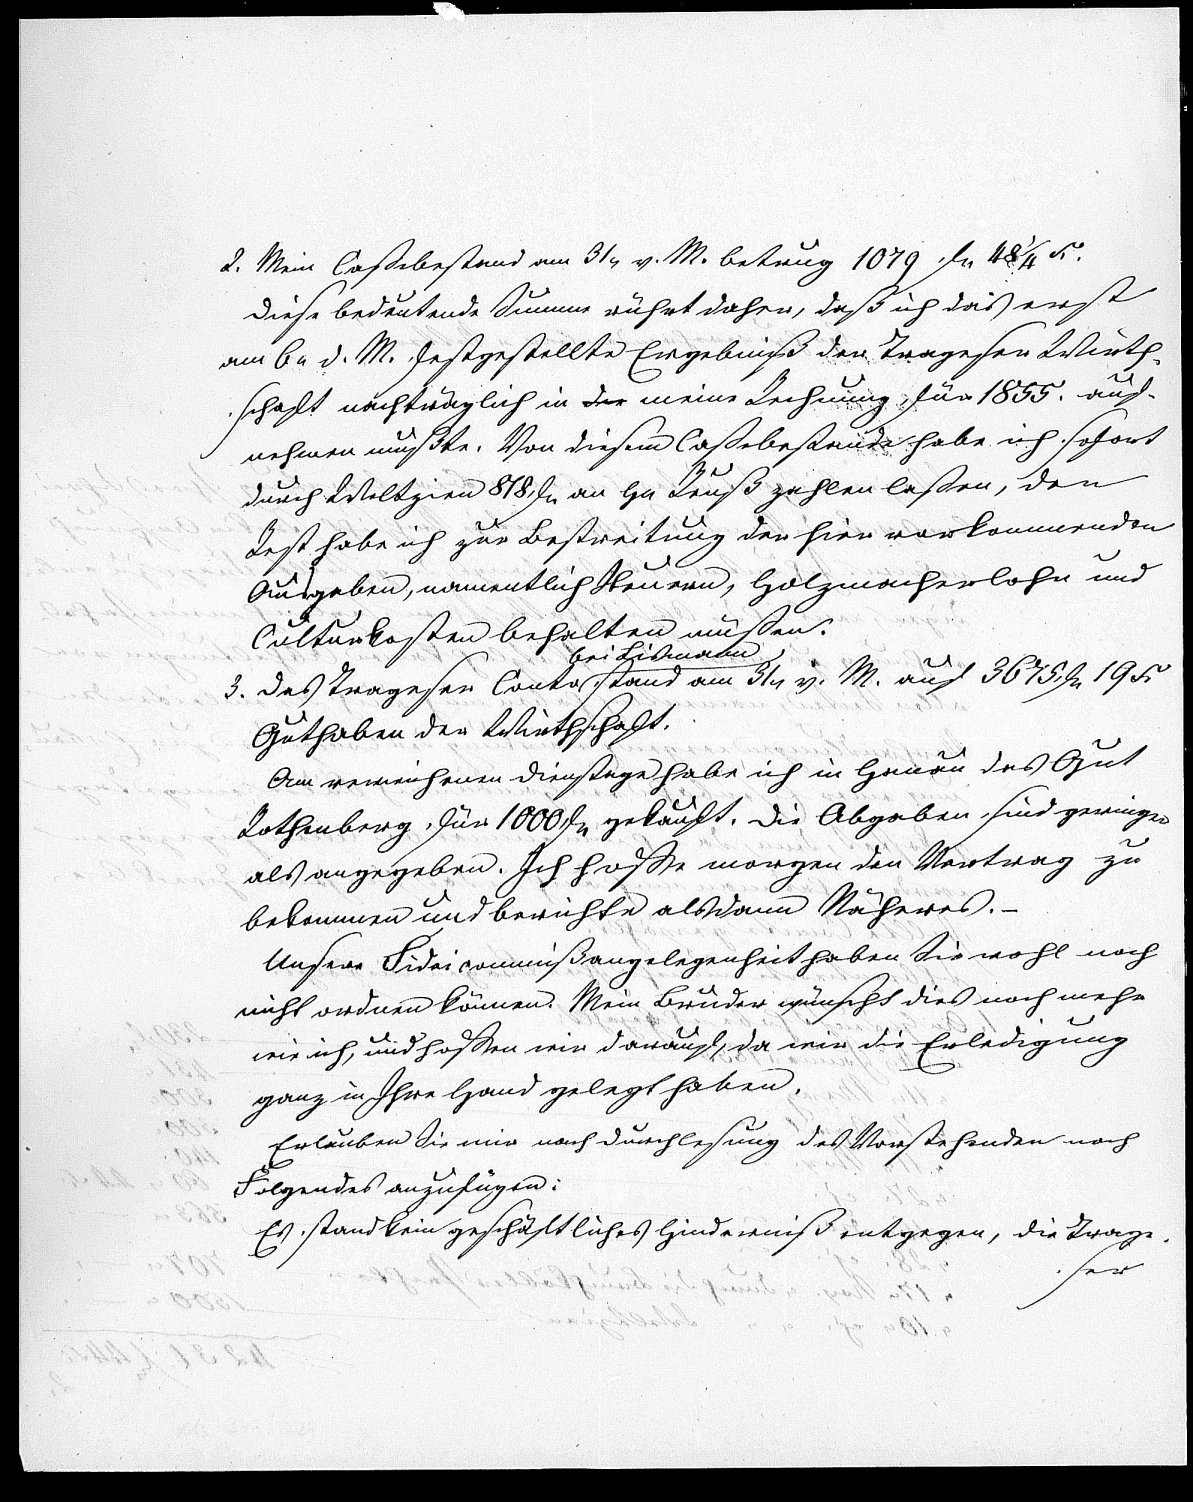 2. Mein Cassebestand am 31n v. M. betrug 1079 fl 48 1/4 x.
Diese bedeutende Summe rührt daher, daß ich das erst
am 6n d. M. festgestellte Ergebniß der Trageser Wirth-
schaft nachträglich in der meine Rechnung für 1855. auf-
nehmen mußte. Von diesem Cassebestande habe ich sofort
durch Weltzien 818 fl an Hn Reuß zahlen lassen, den
Rest habe ich zur Bestreitung der hier vorkommenden
Ausgaben, namentlich Steuern, Holzmacherlohn und
Culturkosten behalten müssen.
bei Lismann
3. Das Trageser Conto stand am 31n v. M. auf 3675 fl 19 x
Guthaben der Wirthschaft.
Am verwichenen Dienstage habe ich in Hanau das Gut
Rothenberg für 1000 fl gekauft. Die Abgaben sind geringer
als angegeben. Ich hoffe morgen den Vertrag zu
bekommen und berichte alsdann Näheres. –
Unsere Fideicommißangelegenheit haben Sie wohl noch
nicht ordnen können. Mein Bruder wünscht dies noch mehr
wie ich, und hoffen wir darauf, da wir die Erledigung
ganz in Ihre Hand gelegt haben.
Erlauben Sie mir nach Durchlesung des Vorstehenden noch
Folgendes anzufügen:
Es stand kein geschäftliches Hinderniß entgegen, die Trage-
ser